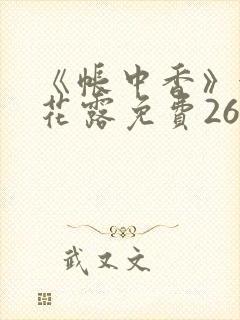 《帐中香》
花露免費26
武又文